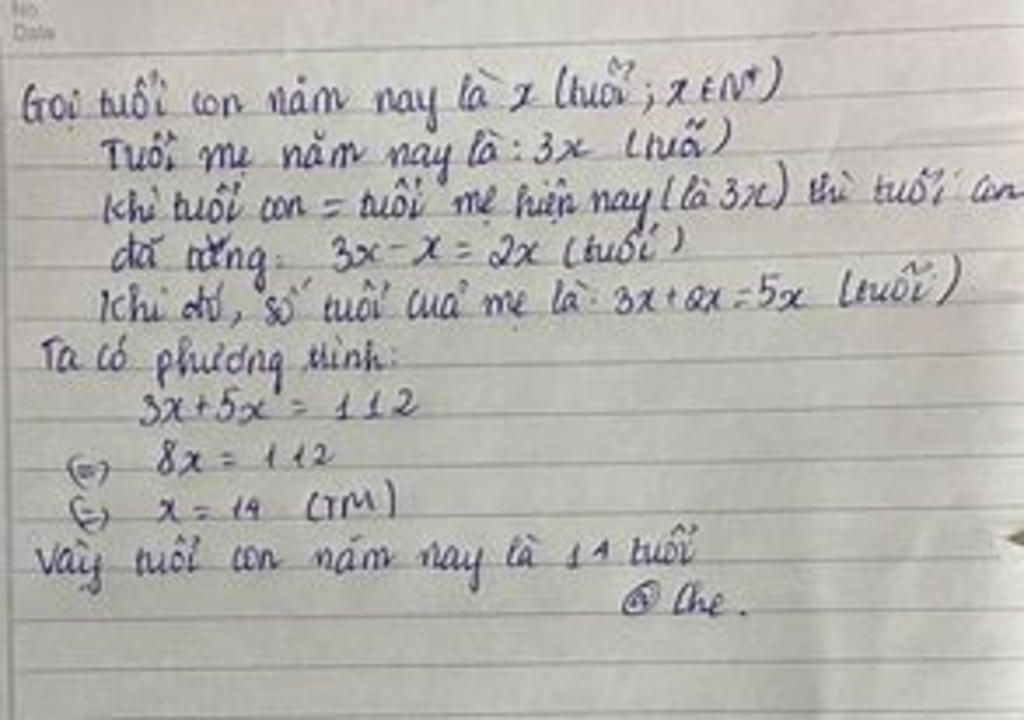 No.
Date
Gọi tuổi con năm nay là x (tuổi; x ∈ N*)
Tuổi mẹ năm nay là: 3x (tuổi)
Khi tuổi con = tuổi mẹ hiện nay (là 3x) thì tuổi con
đã tăng: 3x - x = 2x (tuổi)
Khi đó, số tuổi của mẹ là: 3x + 2x = 5x (tuổi)
Ta có phương trình:
3x + 5x = 112
(=) 8x = 112
(=) x = 14 (TM)
Vậy tuổi con năm nay là 14 tuổi
che.